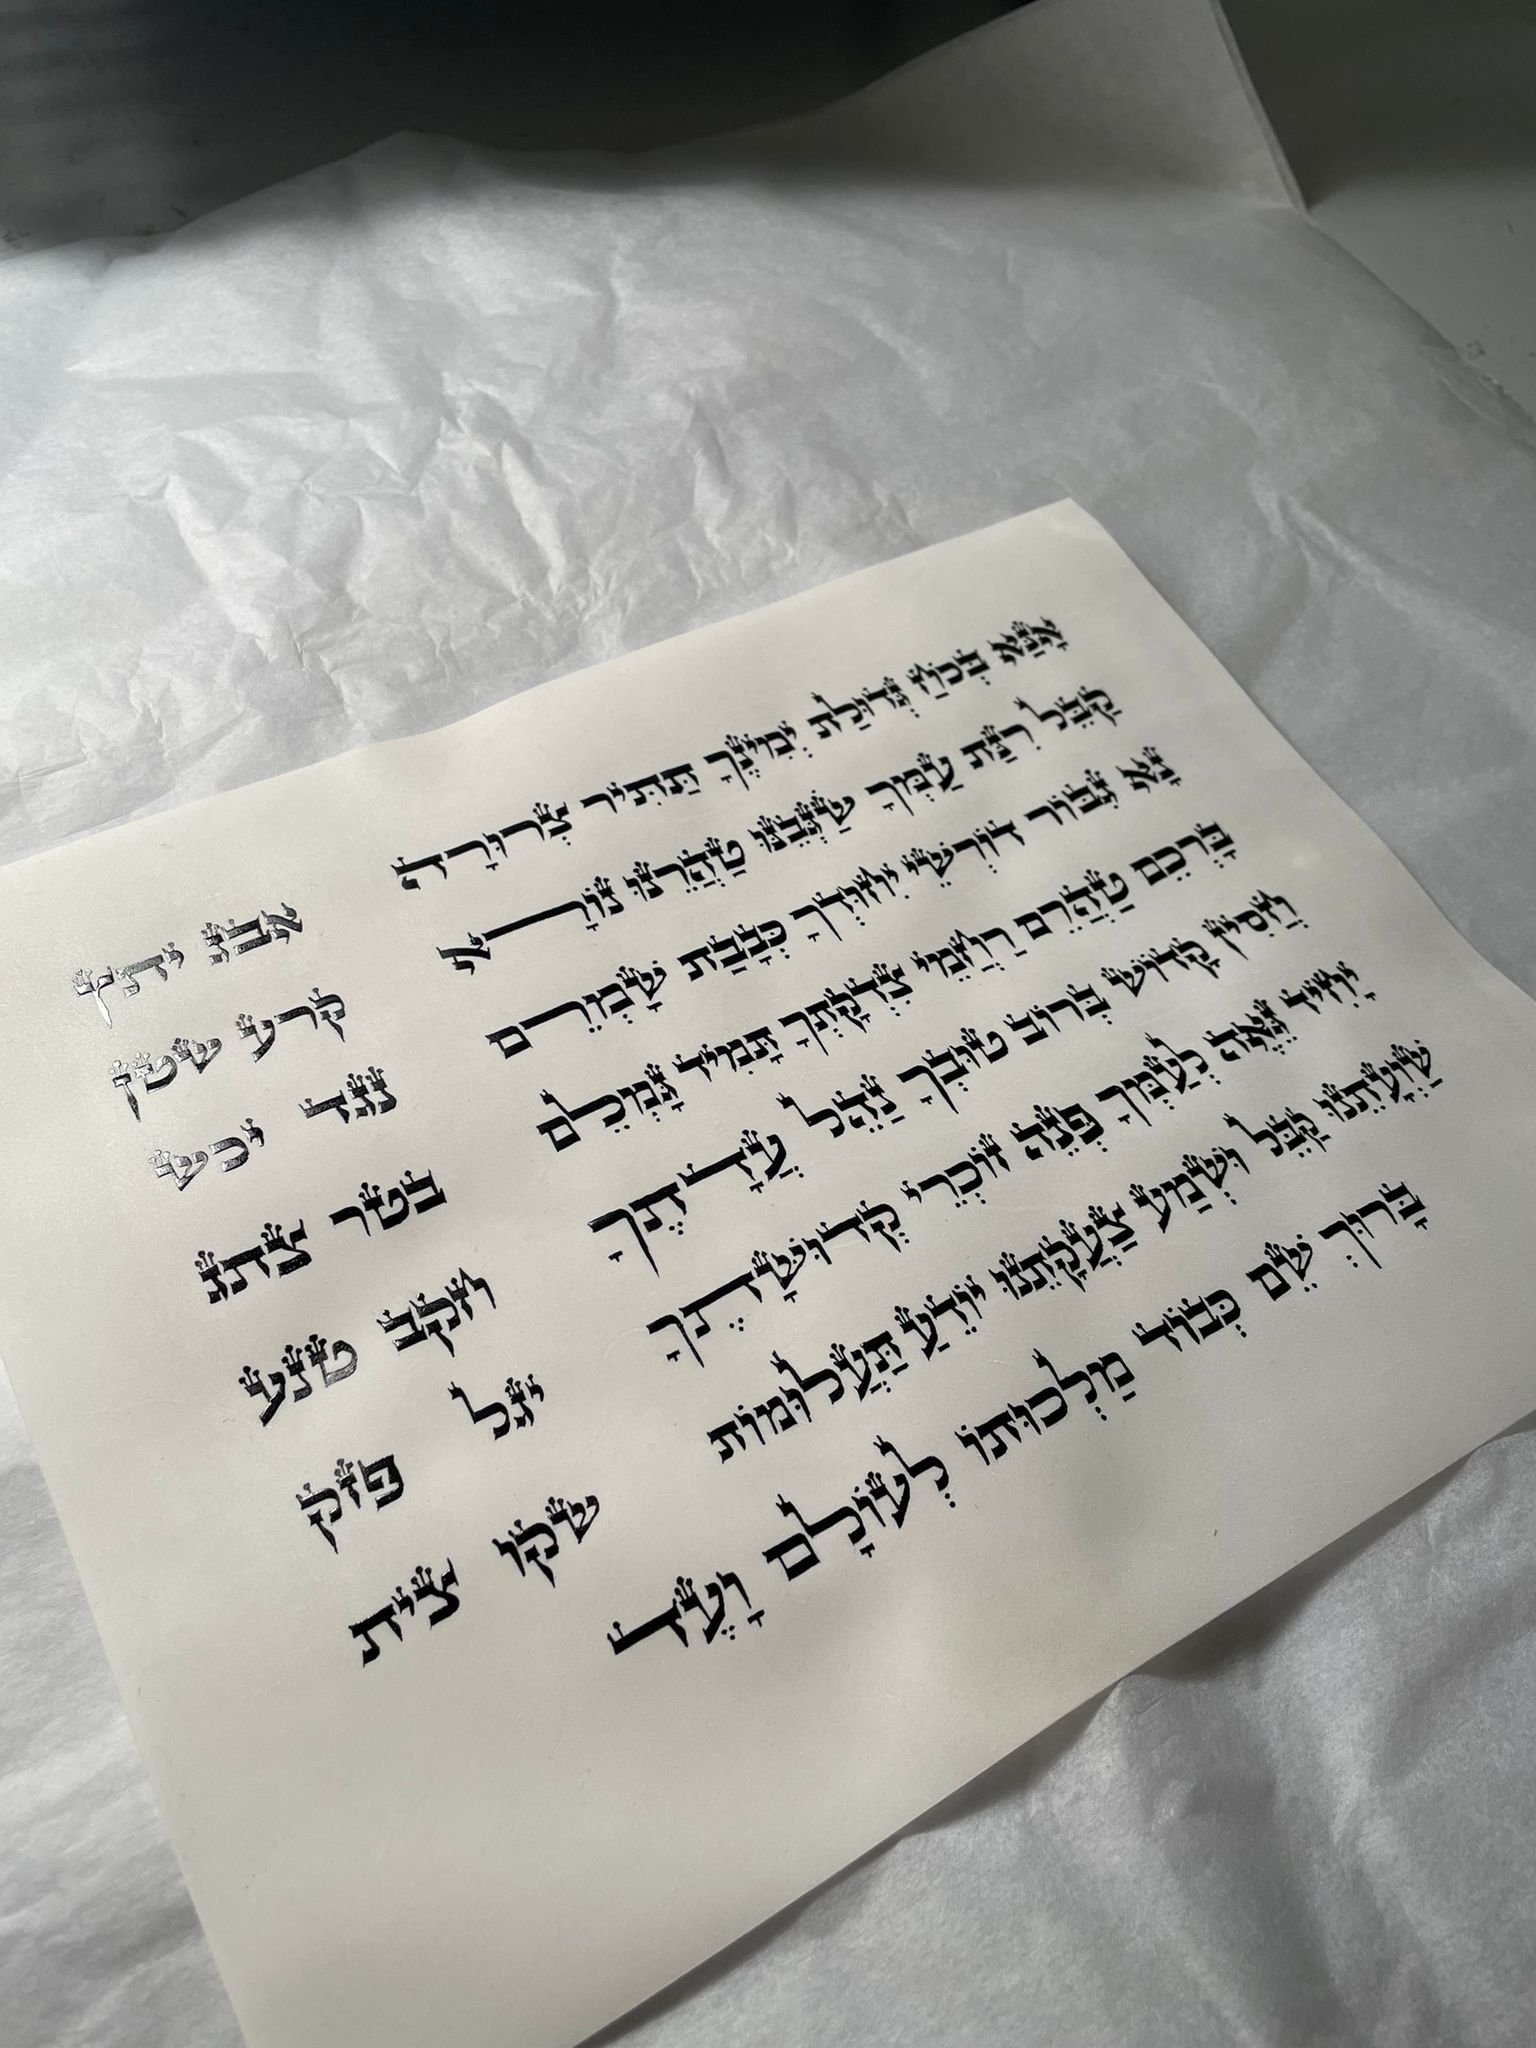 אָנָּא בְּכֹחַ גְּדוּלַת יְמִינֶךָ תַּתִּיר צְרוּרָה אבג יתץ
קַבֵּל רִנַּת עַמֶּךָ שַׂגְּבֵנוּ טַהֲרֵנוּ נוֹרָא קרע שטן
נָא גִּבּוֹר דּוֹרְשֵׁי יִחוּדֶךָ כְּבָבַת שָׁמְרֵם נגד יכש
בָּרְכֵם טַהֲרֵם רַחֲמֵי צִדְקָתֶךָ תָּמִיד גָּמְלֵם בטר צתג
חֲסִין קָדוֹשׁ בְּרוֹב טוּבְךָ נַהֵל עֲדָתֶךָ חקב טנע
יָחִיד גֵּאֶה לְעַמֶּךָ פְּנֵה זוֹכְרֵי קְדוּשָׁתֶךָ יגל פזק
שַׁוְעָתֵנוּ קַבֵּל וּשְׁמַע צַעֲקָתֵנוּ יוֹדֵעַ תַּעֲלוּמוֹת שקו צית
בָּרוּךְ שֵׁם כְּבוֹד מַלְכוּתוֹ לְעוֹלָם וָעֶד